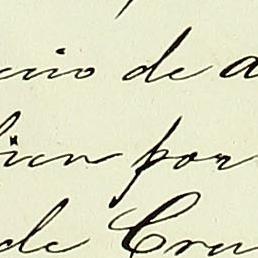 cio de a
bien por
de Cru